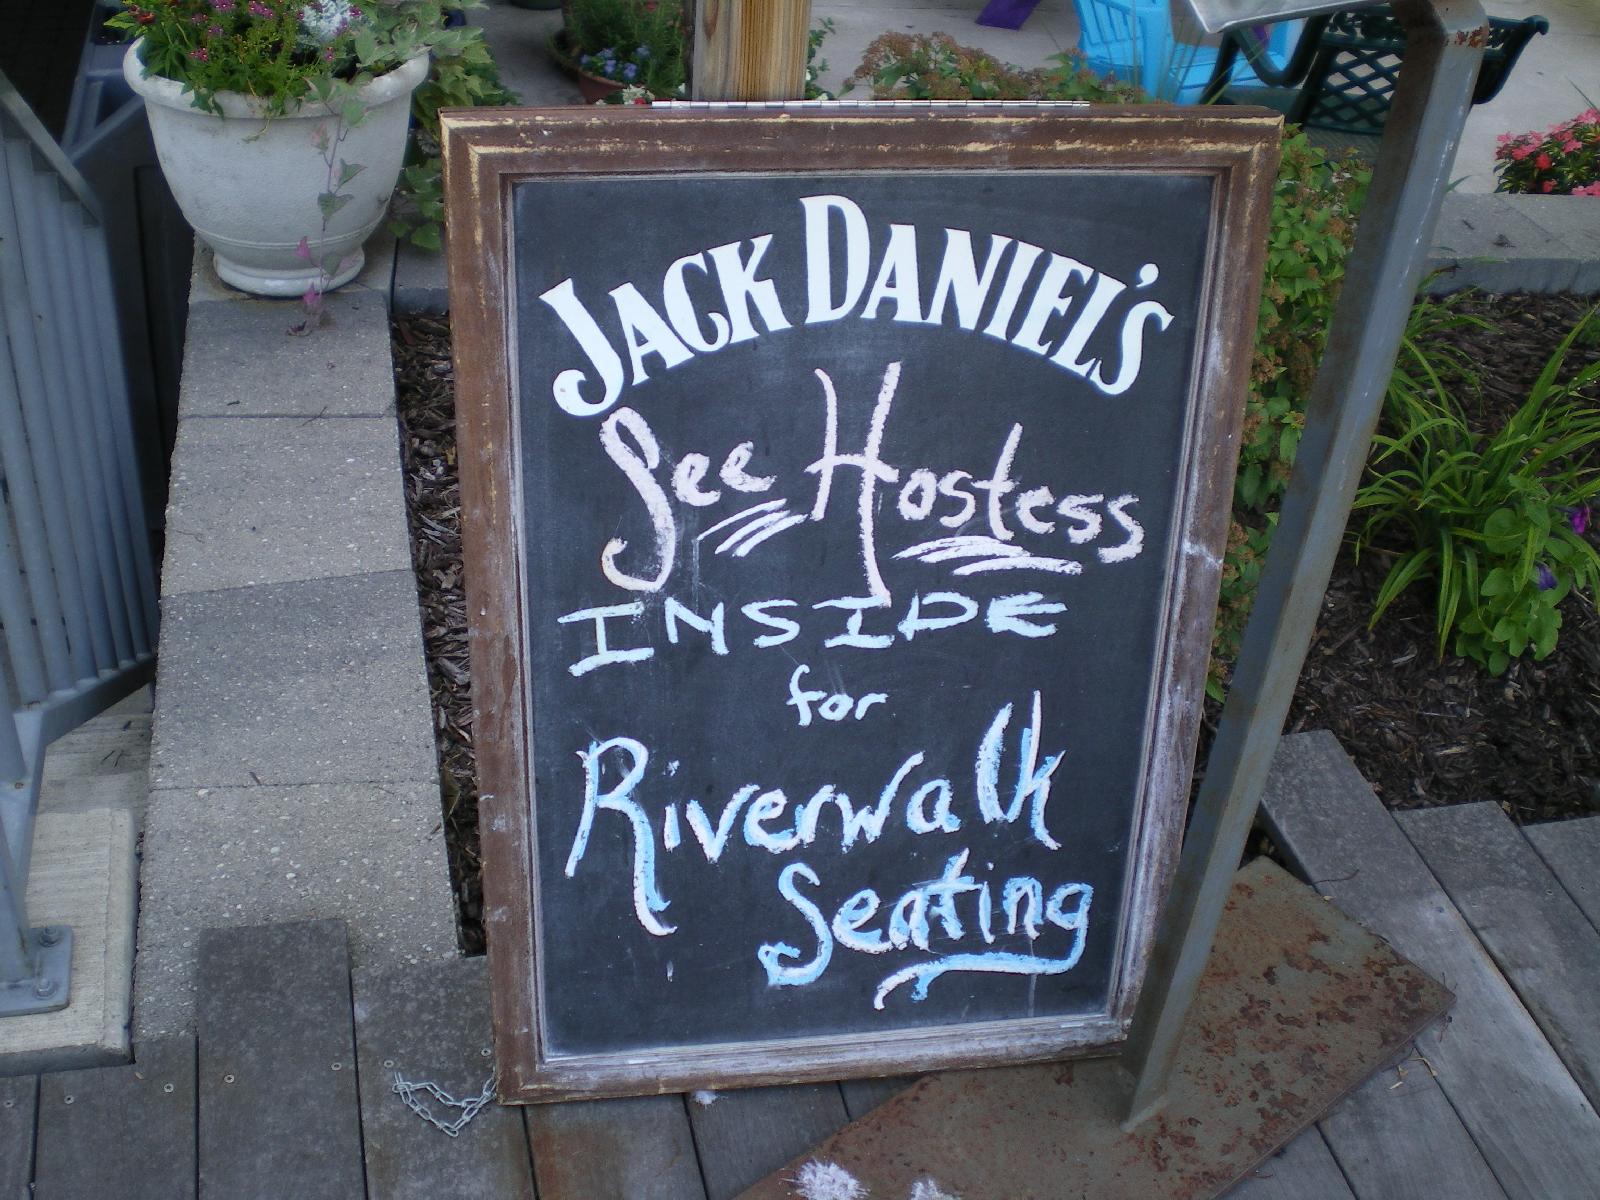 JACK DANIEL'S
See Hostess
INSIDE
for
Riverwalk
Seating